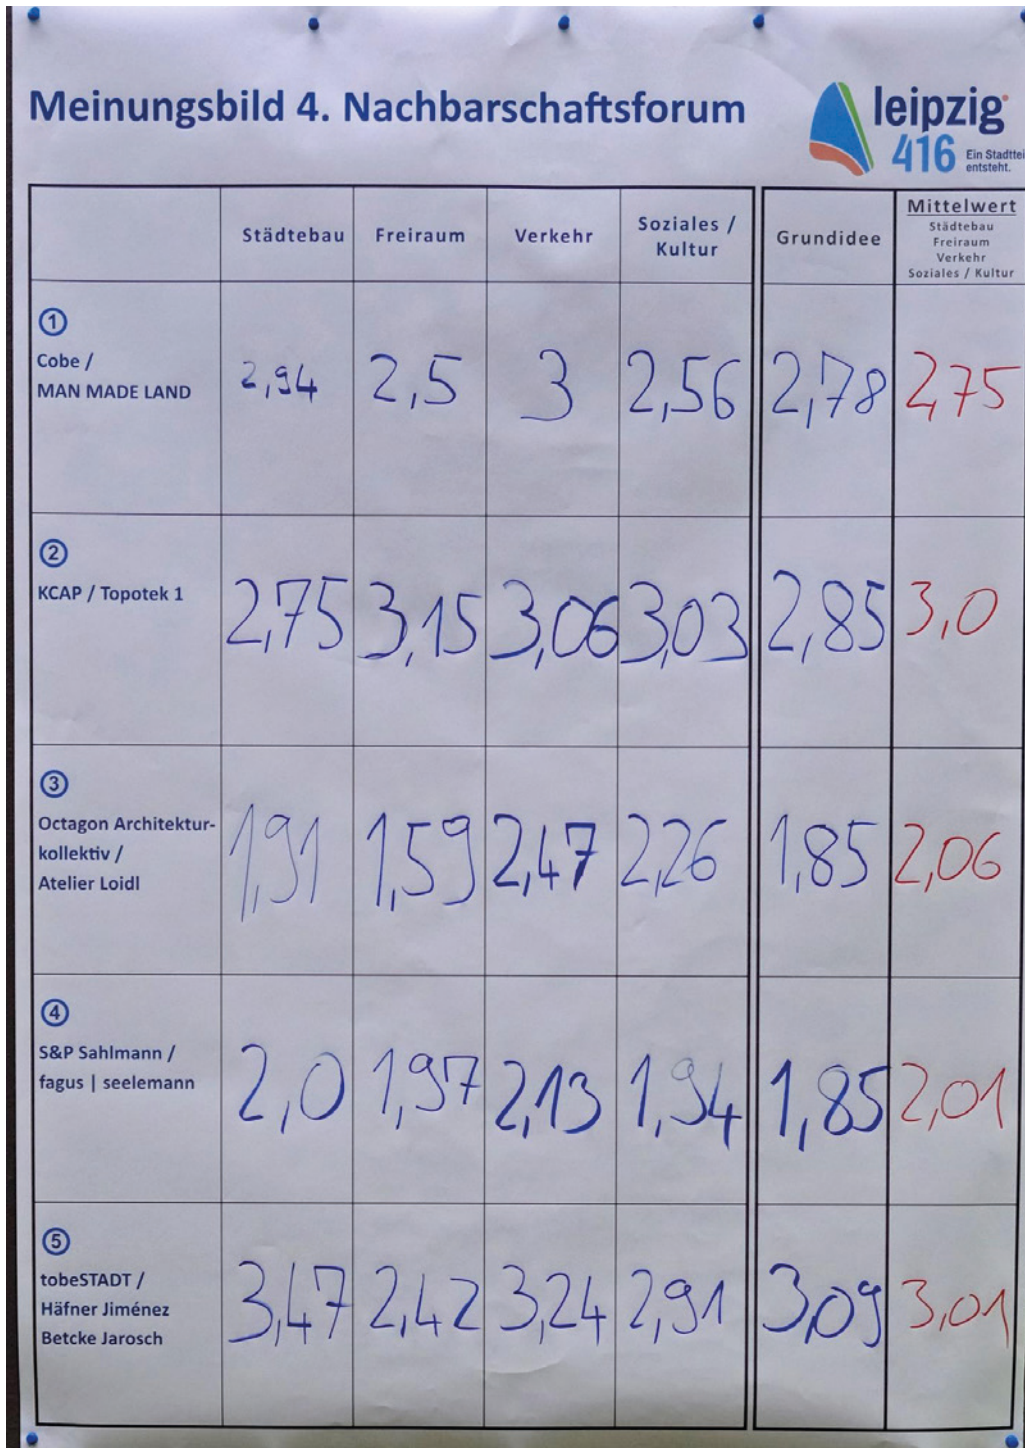 Meinungsbild 4. Nachbarschaftsforum
leipzig
416 Ein Stadttei
entsteht.
Städtebau Freiraum Verkehr Soziales / Kultur Grundidee Mittelwert
Städtebau
Freiraum
Verkehr
Soziales / Kultur
1
Cobe /
MAN MADE LAND
2,94 2,5 3 2,56 2,78 2,75
2
KCAP / Topotek 1
2,75 3,15 3,06 3,03 2,85 3,0
3
Octagon Architektur-
kollektiv /
Atelier Loidl
1,91 1,59 2,47 2,26 1,85 2,06
4
S&P Sahlmann /
fagus | seelemann
2,0 1,97 2,13 1,94 1,85 2,01
5
tobeSTADT /
Häfner Jiménez
Betcke Jarosch
3,47 2,42 3,24 2,91 3,09 3,01